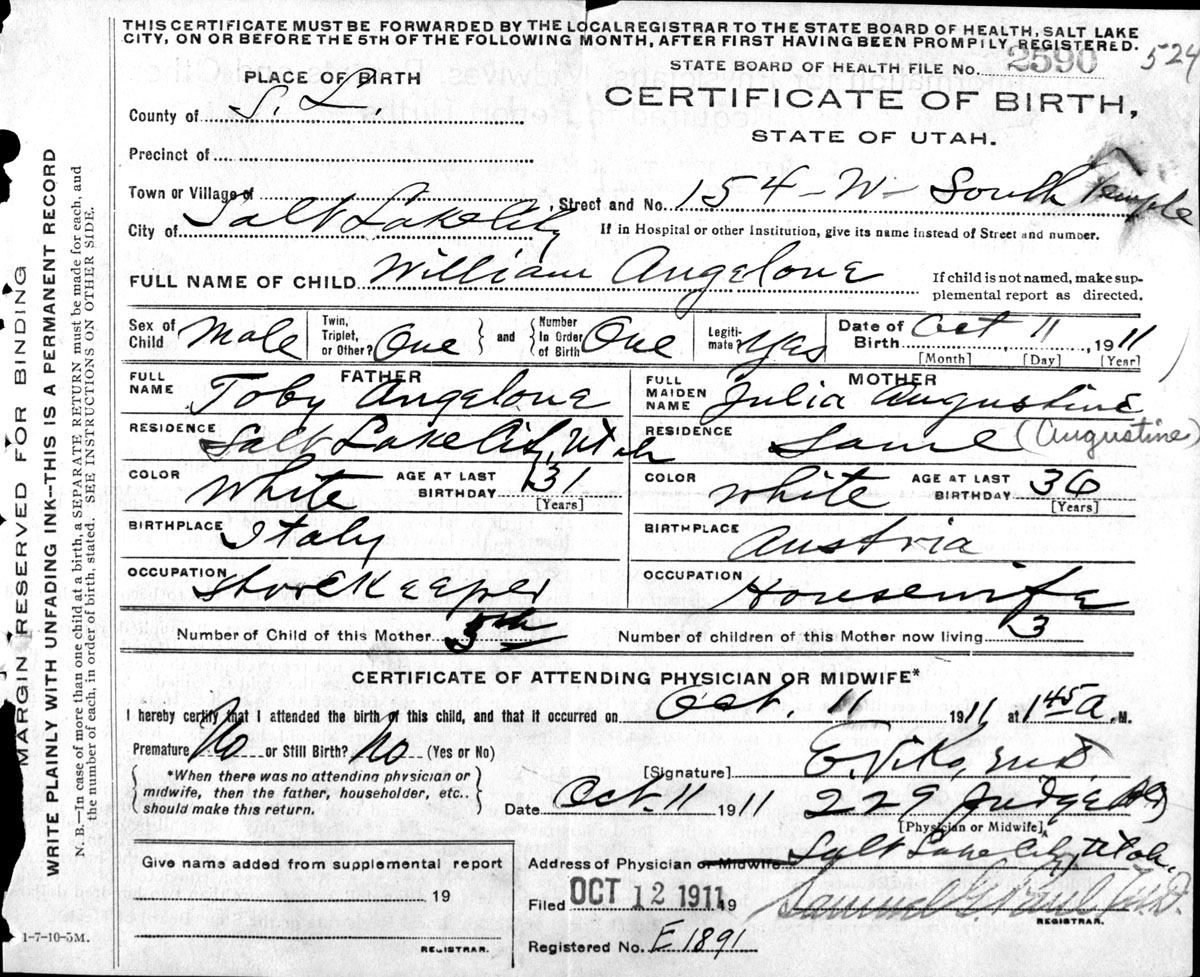 THIS CERTIFICATE MUST BE FORWARDED BY THE LOCAL REGISTRAR TO THE STATE BOARD OF HEALTH, SALT LAKE
CITY, ON OR BEFORE THE 5TH OF THE FOLLOWING MONTH, AFTER FIRST HAVING BEEN PROMPTLY REGISTERED.
STATE BOARD OF HEALTH FILE NO. 2590 524
PLACE OF BIRTH
CERTIFICATE OF BIRTH,
STATE OF UTAH.
County of S. L.
Precinct of
Town or Village of
Street and No. 154-W-South Temple
City of Salt Lake City
If in Hospital or other Institution, give its name instead of Street and number.
FULL NAME OF CHILD William Angelone
If child is not named, make sup-
plemental report as directed.
Sex of Child Male
Twin, Triplet, or Other? One } and { Number In Order of Birth One
Legiti- mate? Yes
Date of Birth Oct 11, 1911
[Month] [Day] [Year]
FATHER
FULL NAME Toby Angelone
MOTHER
FULL MAIDEN NAME Julia Augustine
RESIDENCE Salt Lake City, Utah
RESIDENCE Same (Augustine)
COLOR White AGE AT LAST BIRTHDAY 31 [Years]
COLOR White AGE AT LAST BIRTHDAY 36 [Years]
BIRTHPLACE Italy
BIRTHPLACE Austria
OCCUPATION Storekeeper
OCCUPATION Housewife
Number of Child of this Mother
Number of children of this Mother now living 3
CERTIFICATE OF ATTENDING PHYSICIAN OR MIDWIFE*
I hereby certify that I attended the birth of this child, and that it occurred on Oct. 11 1911 at 1 45 A. M.
Premature No or Still Birth? No (Yes or No)
{ *When there was no attending physician or
midwife, then the father, householder, etc.,
should make this return. }
[Signature] E. Viko, M.D.
Date Oct. 11 1911 229 Judge Bldg
[Physician or Midwife]
Address of Physician or Midwife Salt Lake City, Utah
Filed OCT 12 1911 19
Samuel G. Paul M.D.
REGISTRAR.
Registered No. E 1891
Give name added from supplemental report
19
REGISTRAR.
1-7-10-5M.
MARGIN RESERVED FOR BINDING
WRITE PLAINLY WITH UNFADING INK—THIS IS A PERMANENT RECORD
N. B.—In case of more than one child at a birth, a SEPARATE RETURN must be made for each, and
the number of each, in order of birth, stated. SEE INSTRUCTIONS ON OTHER SIDE.